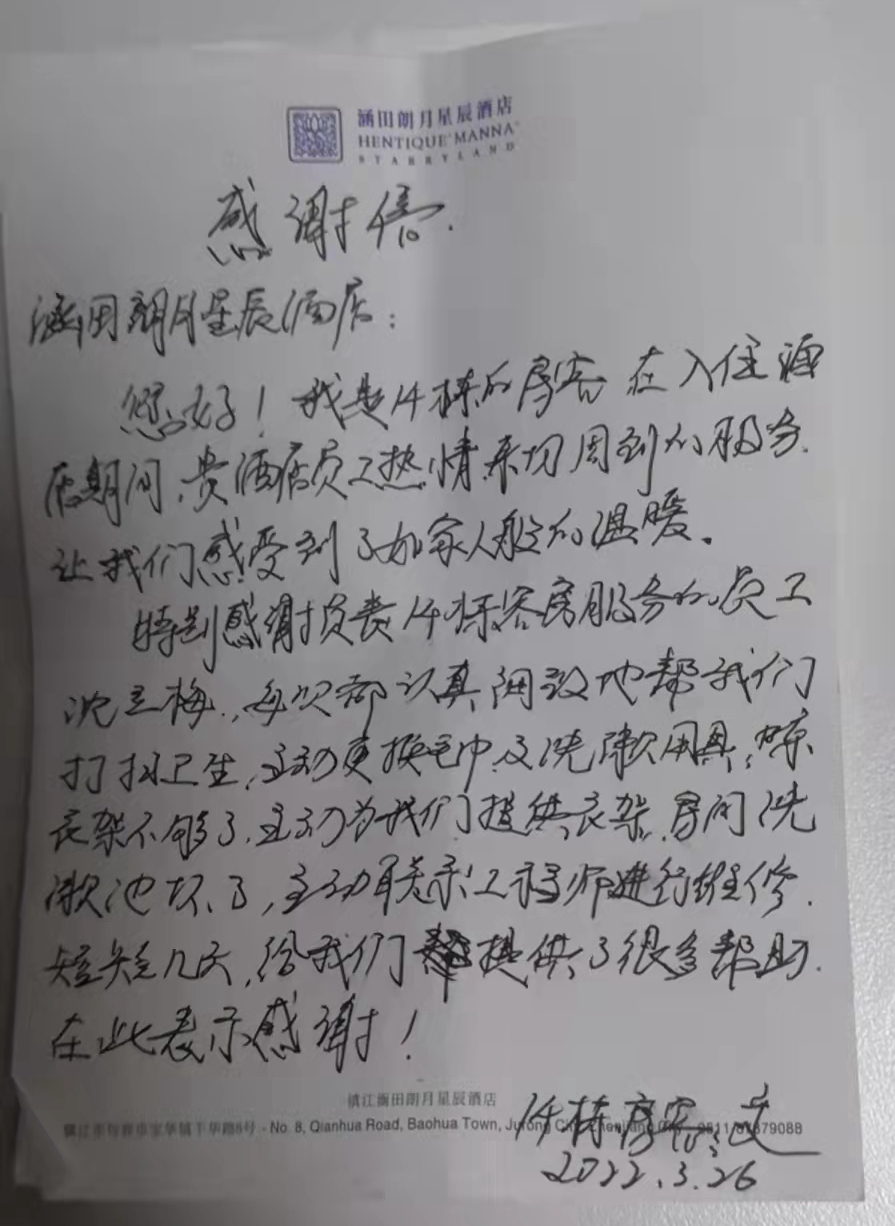 涵田朗月星辰酒店
HENTIQUE MANNA
STARRYLAND
感谢信.
涵田朗月星辰酒店：
您好！我是14栋的房客 在入住酒
店期间、贵酒店员工热情亲切周到的服务.
让我们感受到了如家人般的温暖。
特别感谢负责14栋客房服务的员工
沈立梅.，每次都认真细致地帮我们
打扫卫生，主动更换毛巾及洗漱用具，晾
衣架不够了，主动为我们提供衣架，房间洗
漱池坏了，主动联系工程师进行维修.
短短几天，给我们提供了很多帮助.
在此表示感谢！
镇江涵田朗月星辰酒店
镇江市句容市宝华镇千华路8号 - No. 8, Qianhua Road, Baohua Town, Jurong City, Zhenjiang 0511/87879088
14栋房客：文
2022.3.26